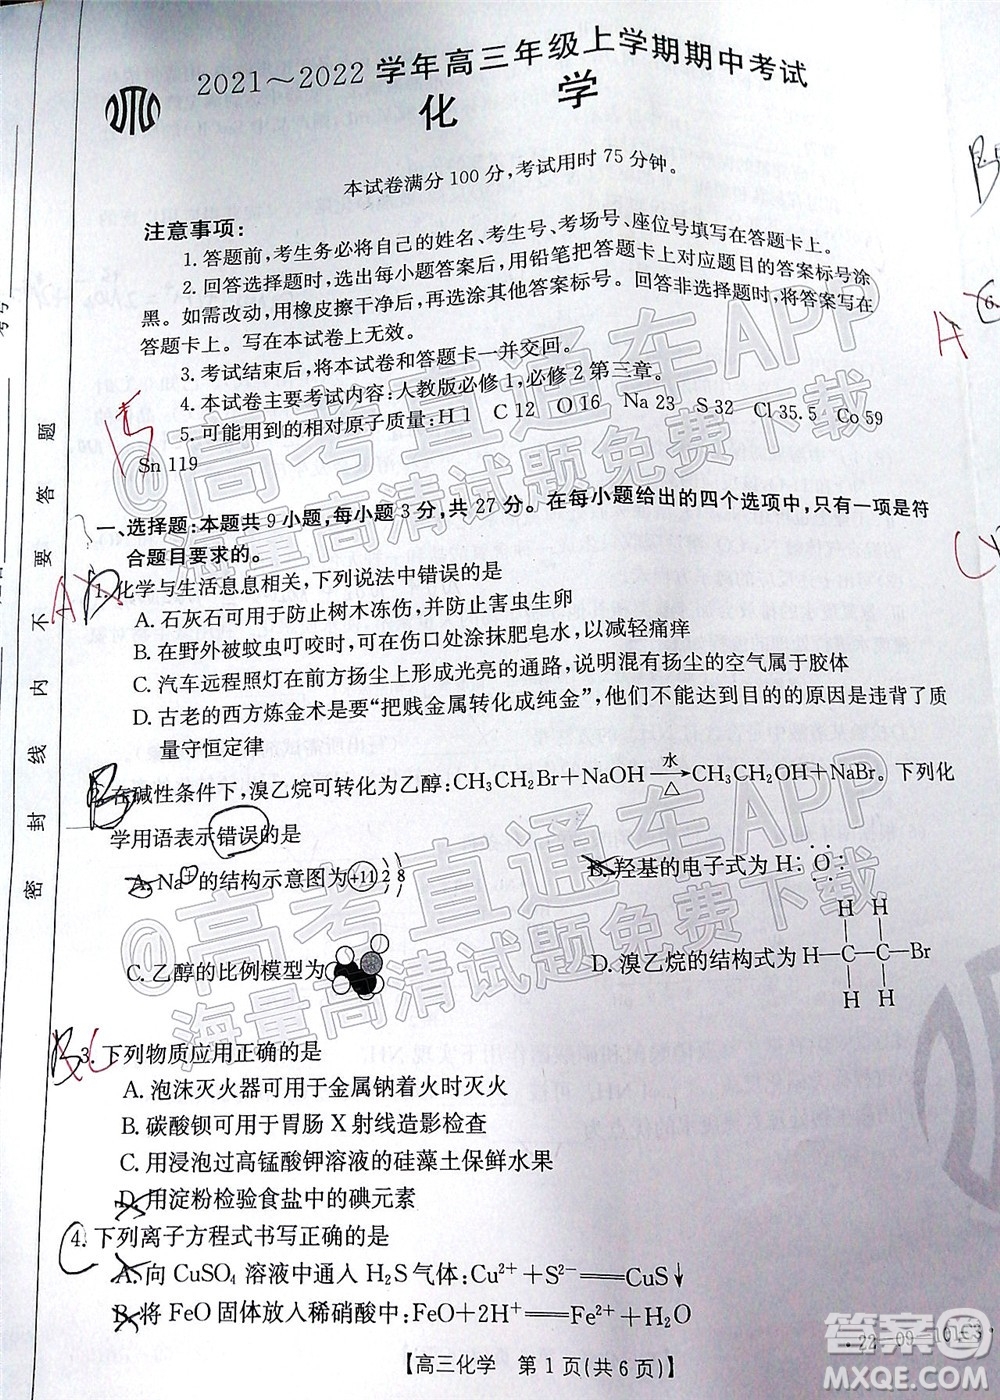 2021～2022 学年高三年级上学期期中考试
化 学
本试卷满分 100 分,考试用时 75 分钟。
注意事项:
1. 答题前,考生务必将自己的姓名、考生号、考场号、座位号填写在答题卡上。
2. 回答选择题时,选出每小题答案后,用铅笔把答题卡上对应题目的答案标号涂
黑。如需改动,用橡皮擦干净后,再选涂其他答案标号。回答非选择题时,将答案写在
答题卡上。写在本试卷上无效。
3. 考试结束后,将本试卷和答题卡一并交回。
4. 本试卷主要考试内容:人教版必修 1,必修 2 第三章。
5. 可能用到的相对原子质量:H 1 C 12 O 16 Na 23 S 32 Cl 35.5 Co 59
Sn 119
一、选择题:本题共 9 小题,每小题 3 分,共 27 分。在每小题给出的四个选项中,只有一项是符
合题目要求的。
1. 化学与生活息息相关,下列说法中错误的是
A. 石灰石可用于防止树木冻伤,并防止害虫生卵
B. 在野外被蚊虫叮咬时,可在伤口处涂抹肥皂水,以减轻痛痒
C. 汽车远程照灯在前方扬尘上形成光亮的通路,说明混有扬尘的空气属于胶体
D. 古老的西方炼金术是要“把贱金属转化成纯金”,他们不能达到目的的原因是违背了质
量守恒定律
在碱性条件下,溴乙烷可转化为乙醇:CH₃CH₂Br+NaOH —水/△→ CH₃CH₂OH+NaBr。下列化
学用语表示错误的是
A. Na⁺的结构示意图为 +11 2 8
B. 羟基的电子式为 H:O:
C. 乙醇的比例模型为
D. 溴乙烷的结构式为 H—C—C—Br
H H
H H
3. 下列物质应用正确的是
A. 泡沫灭火器可用于金属钠着火时灭火
B. 碳酸钡可用于胃肠 X 射线造影检查
C. 用浸泡过高锰酸钾溶液的硅藻土保鲜水果
D. 用淀粉检验食盐中的碘元素
4. 下列离子方程式书写正确的是
A. 向 CuSO₄ 溶液中通入 H₂S 气体:Cu²⁺+S²⁻══CuS↓
B. 将 FeO 固体放入稀硝酸中:FeO+2H⁺══Fe²⁺+H₂O
【高三化学 第 1 页(共 6 页)】
·22-09-101C3·
密 封 线 内 不 要 答 题
@高考直通车APP
海量高清试题免费下载
@高考直通车APP
海量高清试题免费下载
答案圈
MXQE.COM